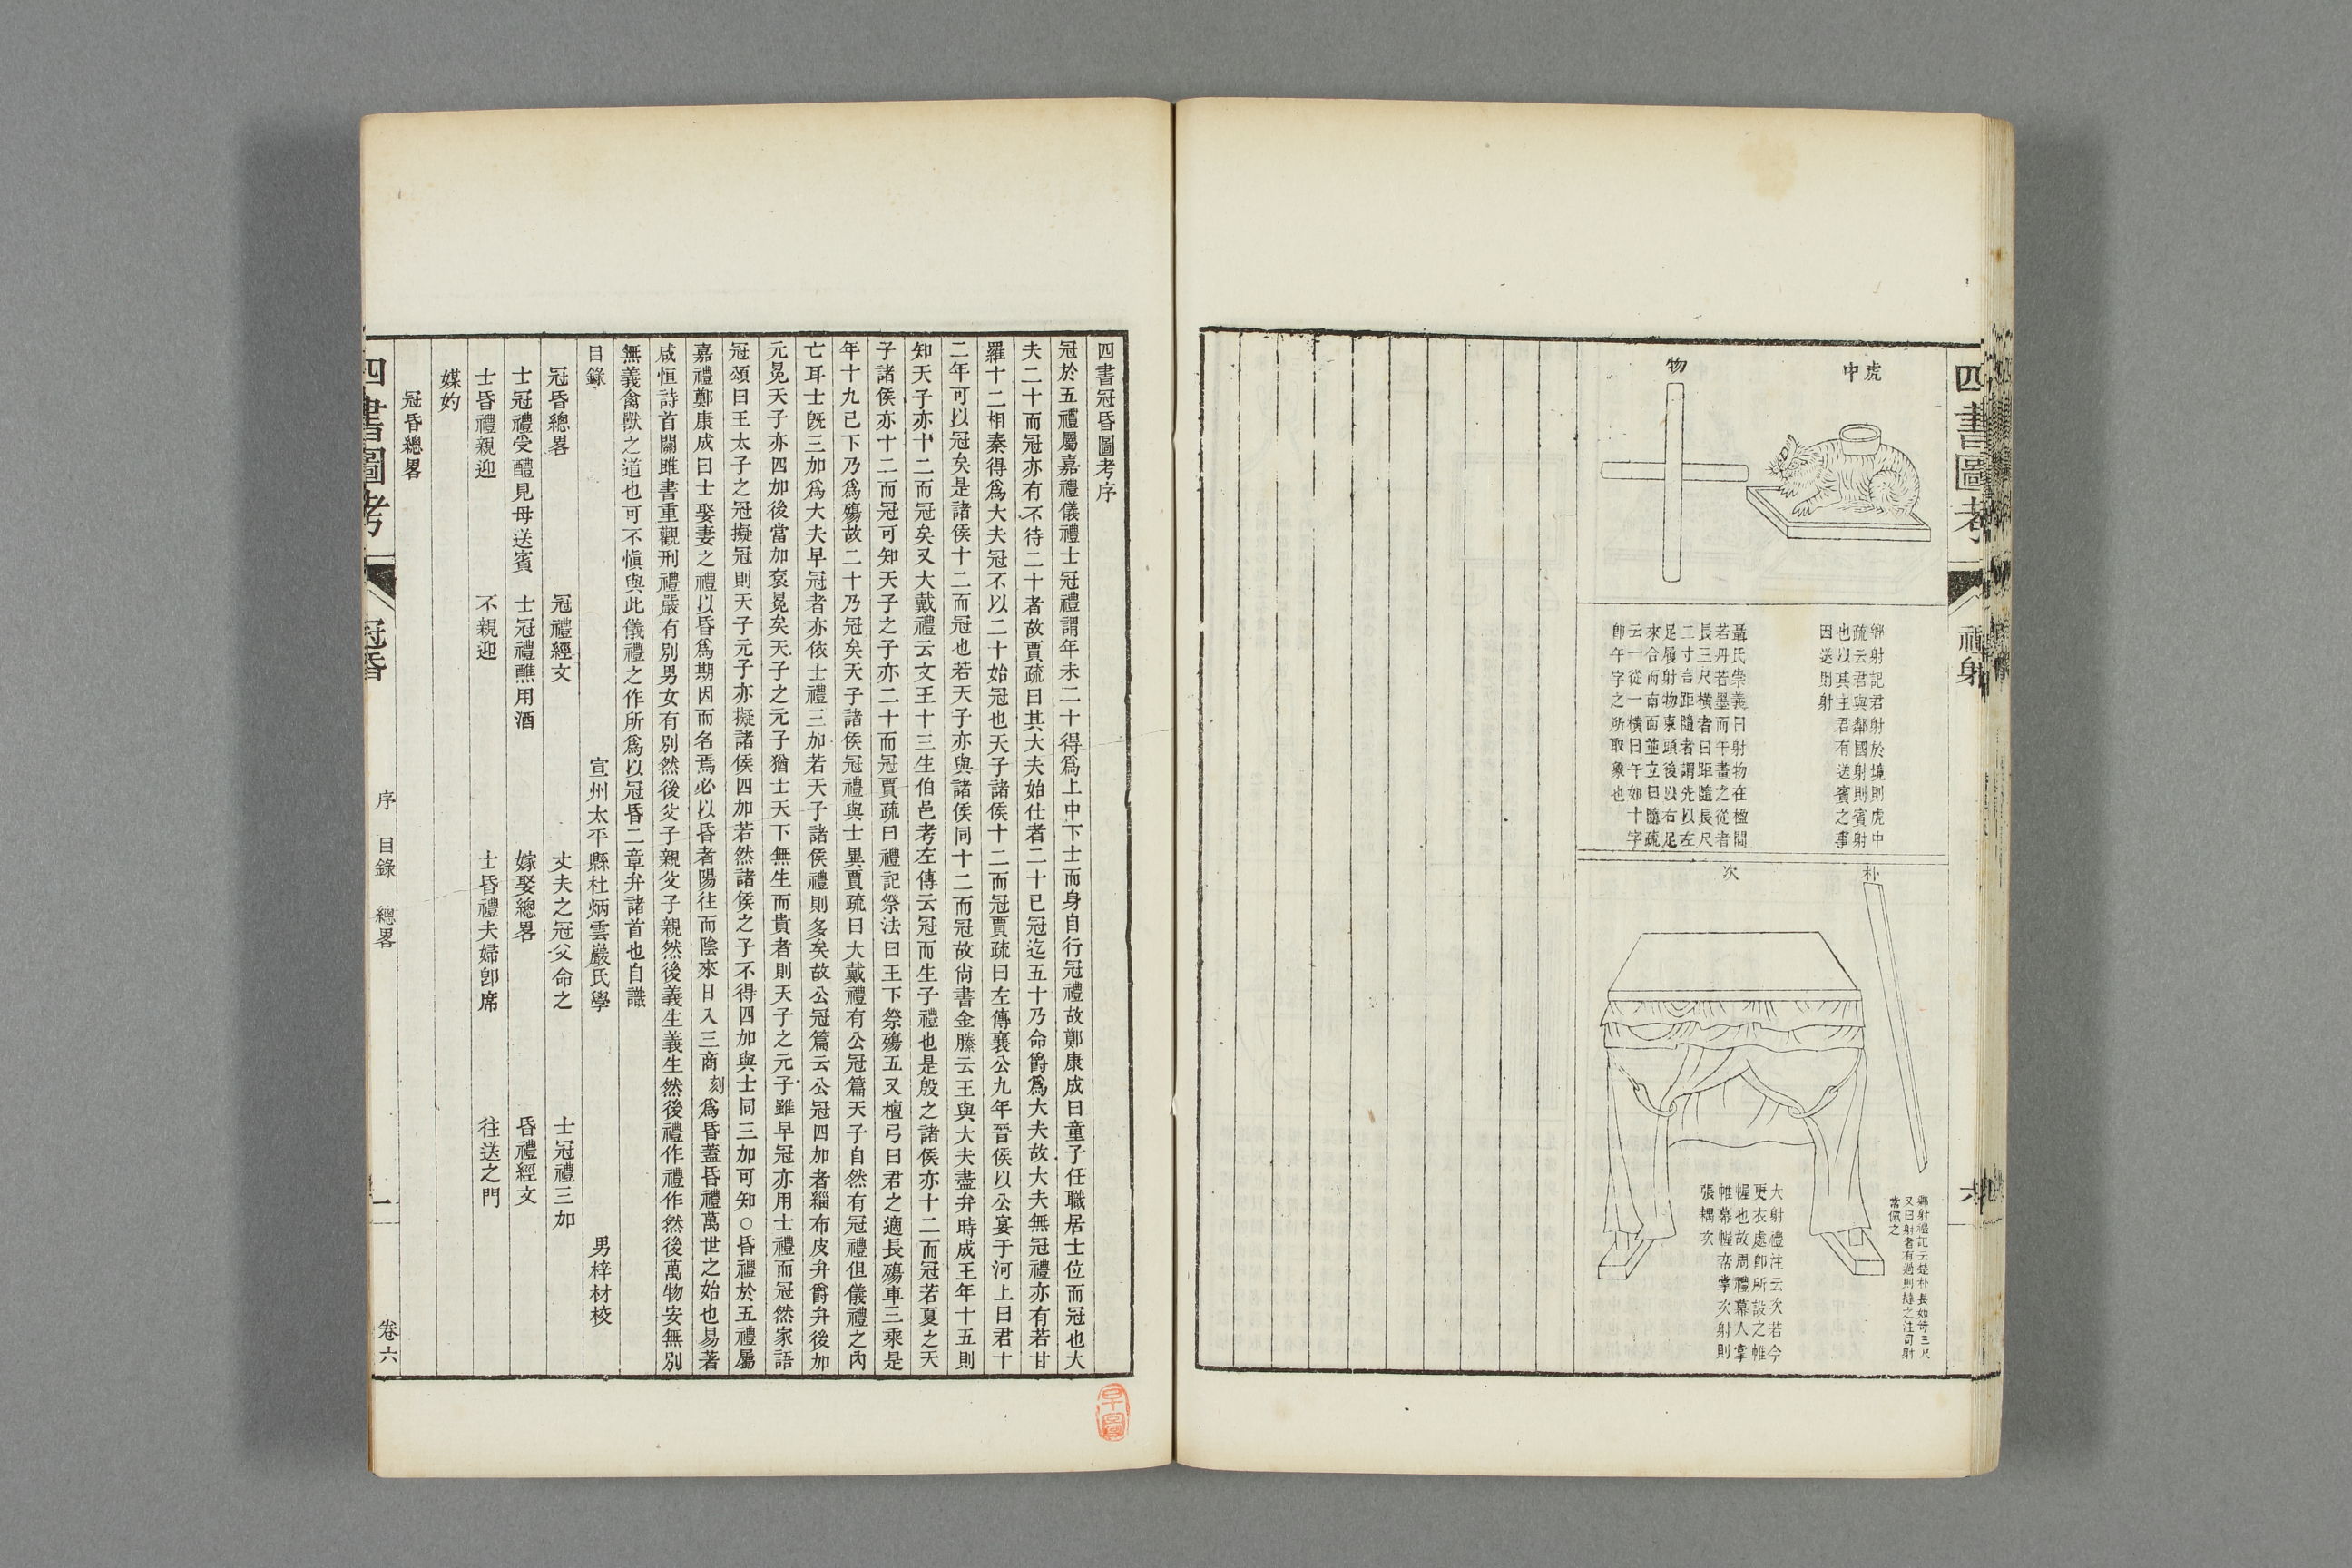 四書圖考
禮射
虎
中
鄉射記君射於境則虎中
疏云君與鄰國射則賓射
也以其主君有送賓之事
因送則射
物
聶氏崇義曰射物在楹間
若丹若墨而午畫之從者
長三尺橫者曰距隨長尺
二寸言距隨者謂先以左
足履射物東頭後以右足
來合而南面並立曰隨疏
云一從一橫曰午如十字
卽午字之所取象也
朴
鄉射禮記云楚朴長如笴三尺
又曰射者有過則撻之注司射
常佩之
次
大射禮注云次若今
更衣處卽所設之帷
幄也故周禮幕人掌
帷幕幄帟掌次射則
張耦次
四書冠昏圖考序
冠於五禮屬嘉禮儀禮士冠禮謂年未二十得爲上中下士而身自行冠禮故鄭康成曰童子任職居士位而冠也大
夫二十而冠亦有不待二十者故賈疏曰其大夫始仕者二十已冠迄五十乃命爵爲大夫故大夫無冠禮亦有若甘
羅十二相秦得爲大夫冠不以二十始冠也天子諸侯十二而冠賈疏曰左傳襄公九年晉侯以公宴于河上曰君十
二年可以冠矣是諸侯十二而冠也若天子亦與諸侯同十二而冠故尙書金縢云王與大夫盡弁時成王年十五則
知天子亦十二而冠矣又大戴禮云文王十三生伯邑考左傳云冠而生子禮也是殷之諸侯亦十二而冠若夏之天
子諸侯亦十二而冠可知天子之子亦二十而冠賈疏曰禮記祭法曰王下祭殤五又檀弓曰君之適長殤車三乘是
年十九已下乃爲殤故二十乃冠矣天子諸侯冠禮與士異賈疏曰大戴禮有公冠篇天子自然有冠禮但儀禮之內
亡耳士旣三加爲大夫早冠者亦依士禮三加若天子諸侯禮則多矣故公冠篇云公冠四加者緇布皮弁爵弁後加
元冕天子亦四加後當加袞冕矣天子之元子猶士天下無生而貴者則天子之元子雖早冠亦用士禮而冠然家語
冠頌曰王太子之冠擬冠則天子元子亦擬諸侯四加若然諸侯之子不得四加與士同三加可知○昏禮於五禮屬
嘉禮鄭康成曰士娶妻之禮以昏爲期因而名焉必以昏者陽往而陰來日入三商刻爲昏蓋昏禮萬世之始也易著
咸恒詩首關雎書重觀刑禮嚴有別男女有別然後父子親父子親然後義生義生然後禮作禮作然後萬物安無別
無義禽獸之道也可不愼與此儀禮之作所爲以冠昏二章弁諸首也自識
目錄　宣州太平縣杜炳雲巖氏學　男梓材校
冠昏總畧　冠禮經文　丈夫之冠父命之　士冠禮三加
士冠禮受醴見母送賓　士冠禮醮用酒　嫁娶總畧　昏禮經文
士昏禮親迎　不親迎　士昏禮夫婦卽席　往送之門
媒妁
冠昏總畧
四書圖考　冠昏　序　目錄　總畧　一　卷六